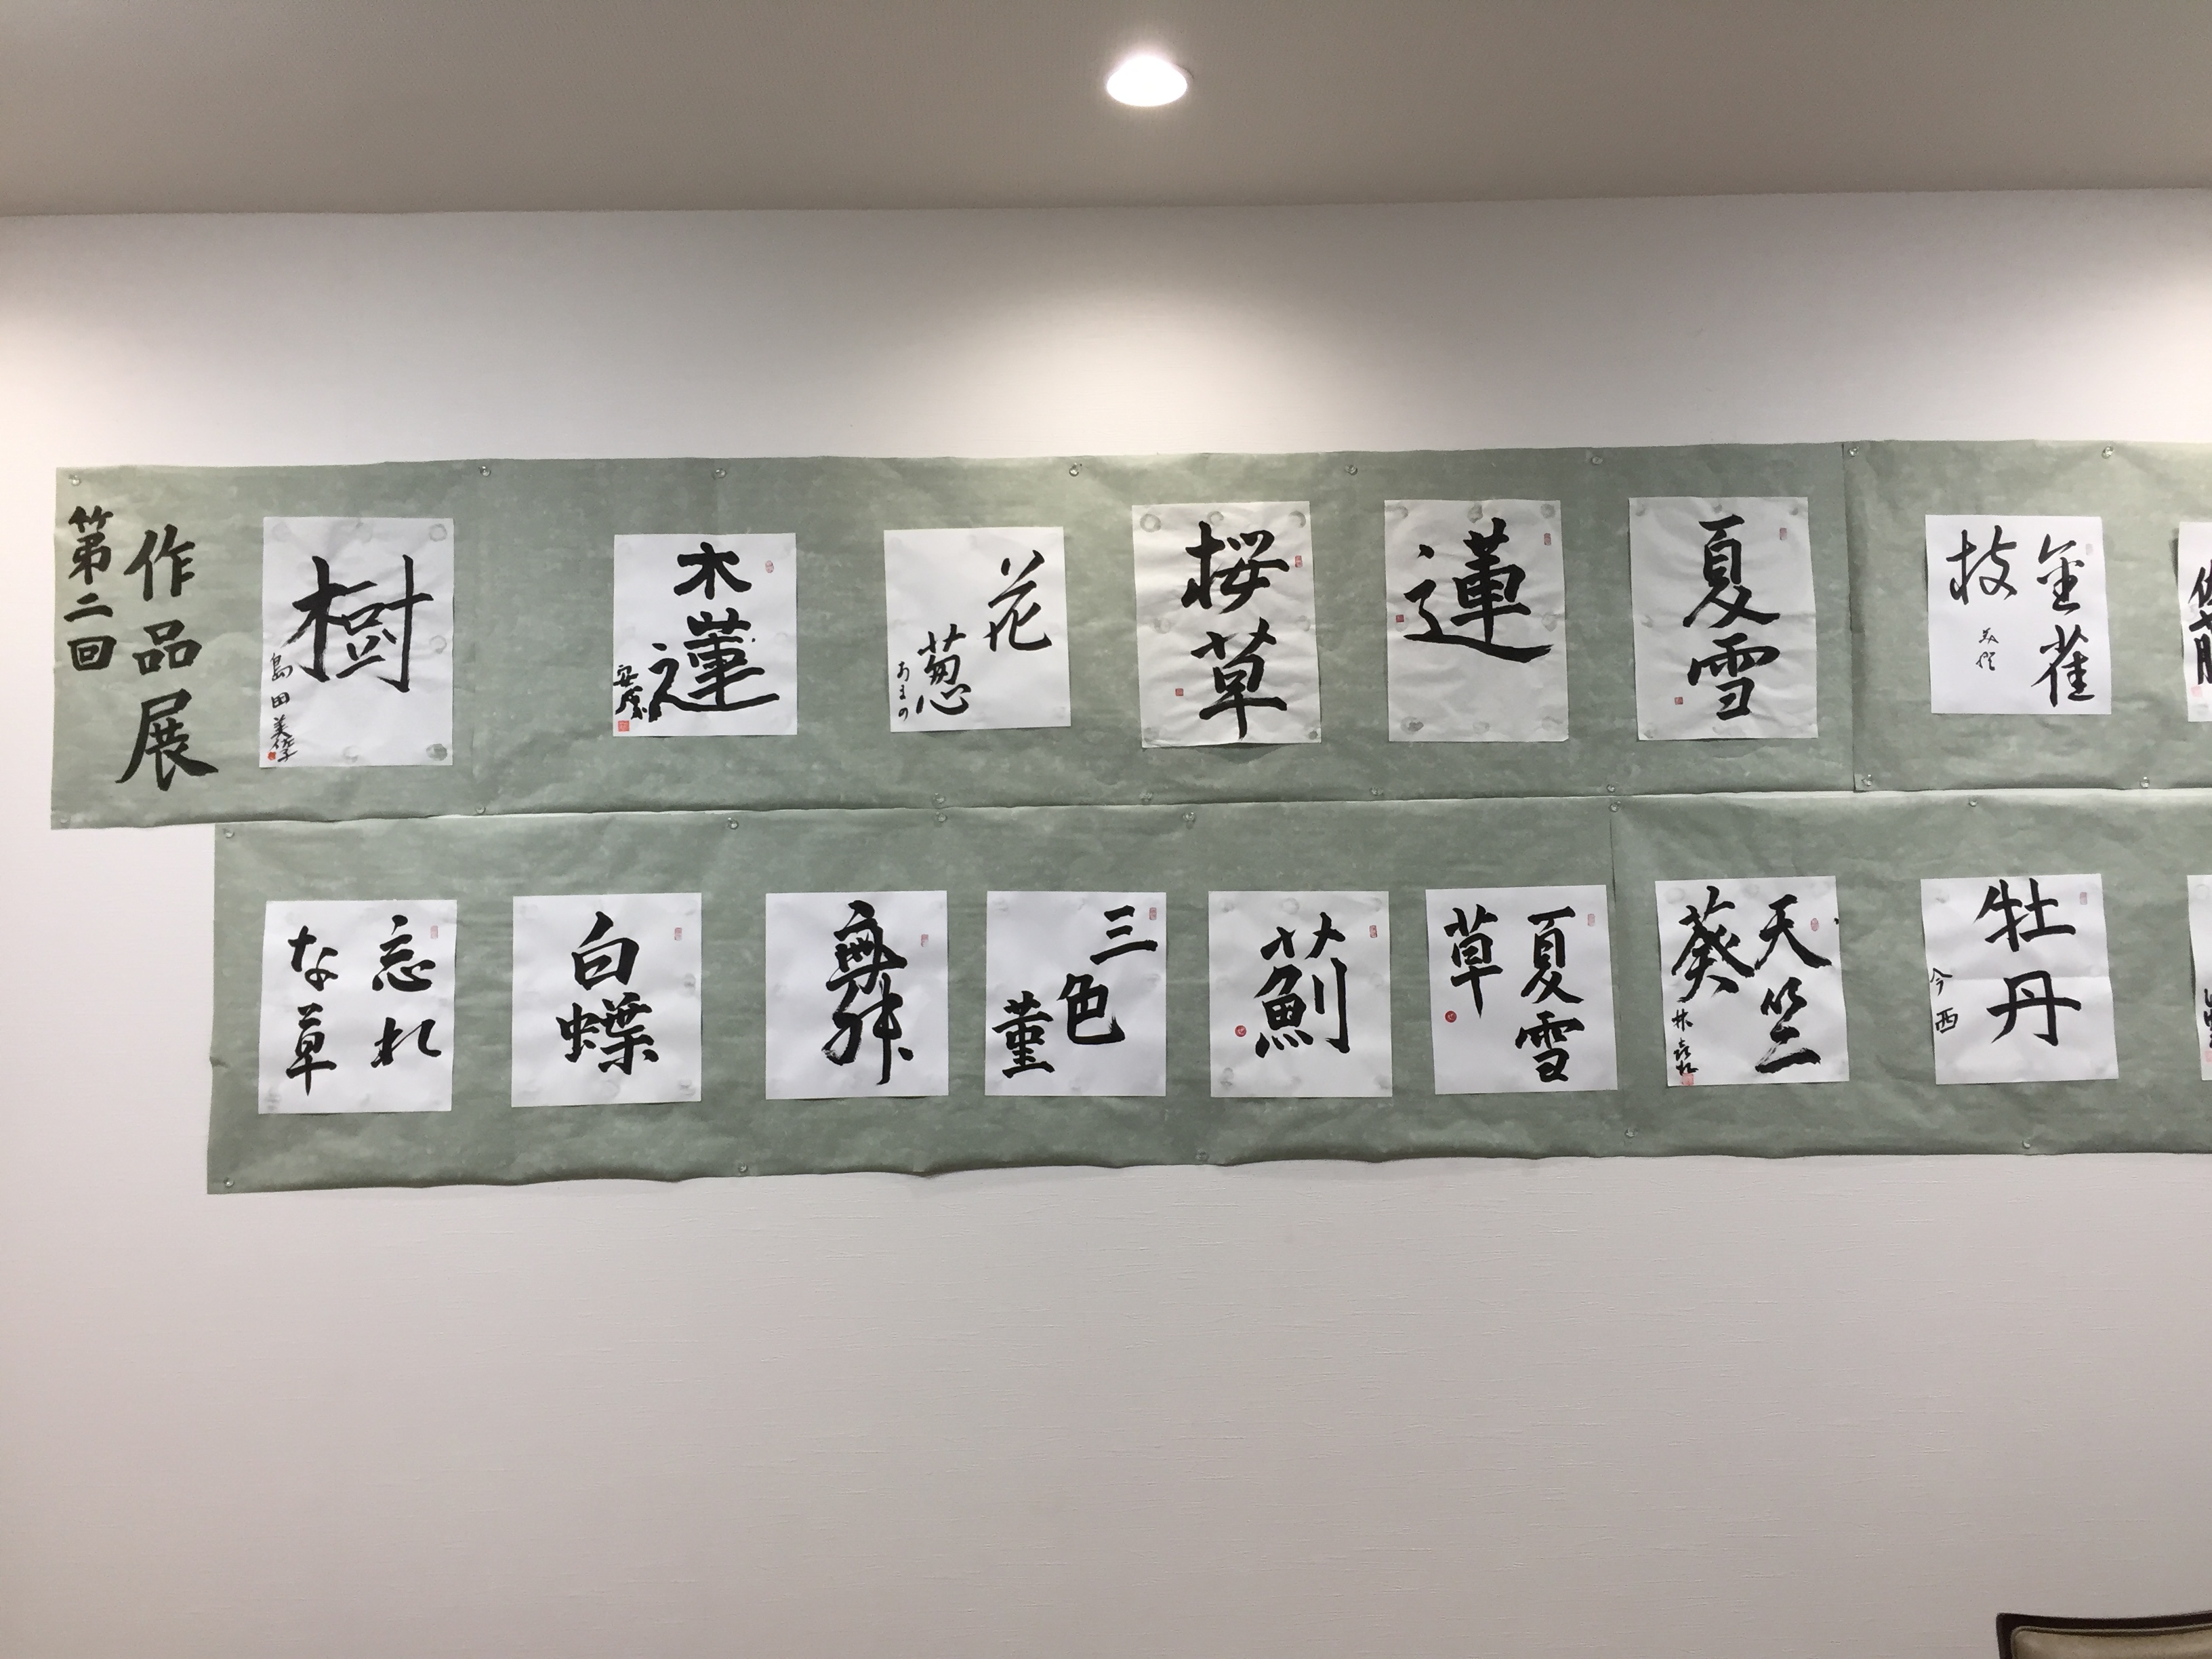 第二回
作品展
樹
島田美
木蓮
花
葱
あまの
桜
草
蓮
夏
雪
金雀
枝
忘れ
な草
白
蝶
舞
三色
菫
薊
夏雪
草
天竺
葵
林
牡
丹
今西